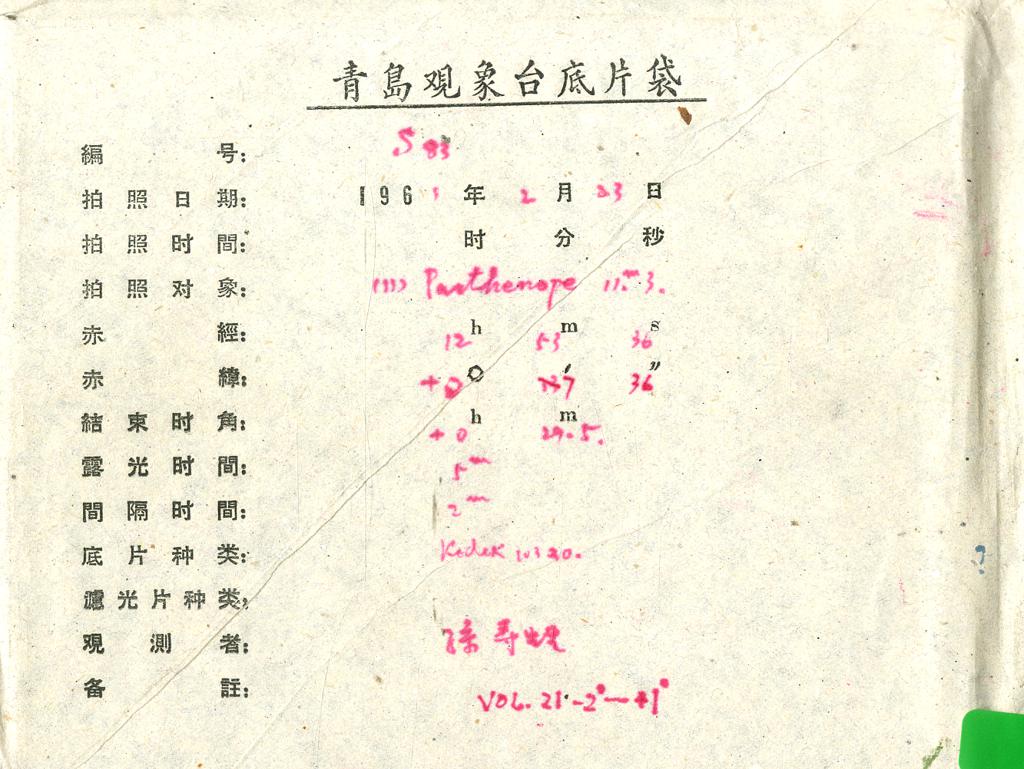 青島观象台底片袋
編号: S 83
拍照日期: 1961年2月23日
拍照时間: 时 分 秒
拍照对象: (11) Parthenope 11.m3.
赤經: 12h 53m 36s
赤緯: +0° 7′ 36″
結束时角: +0h 29.5.m
露光时間: 5m
間隔时間: 2m
底片种类: Kodak 103aO.
濾光片种类:
观測者: 孫寿
备註: VOL. 21 -2°—+1°